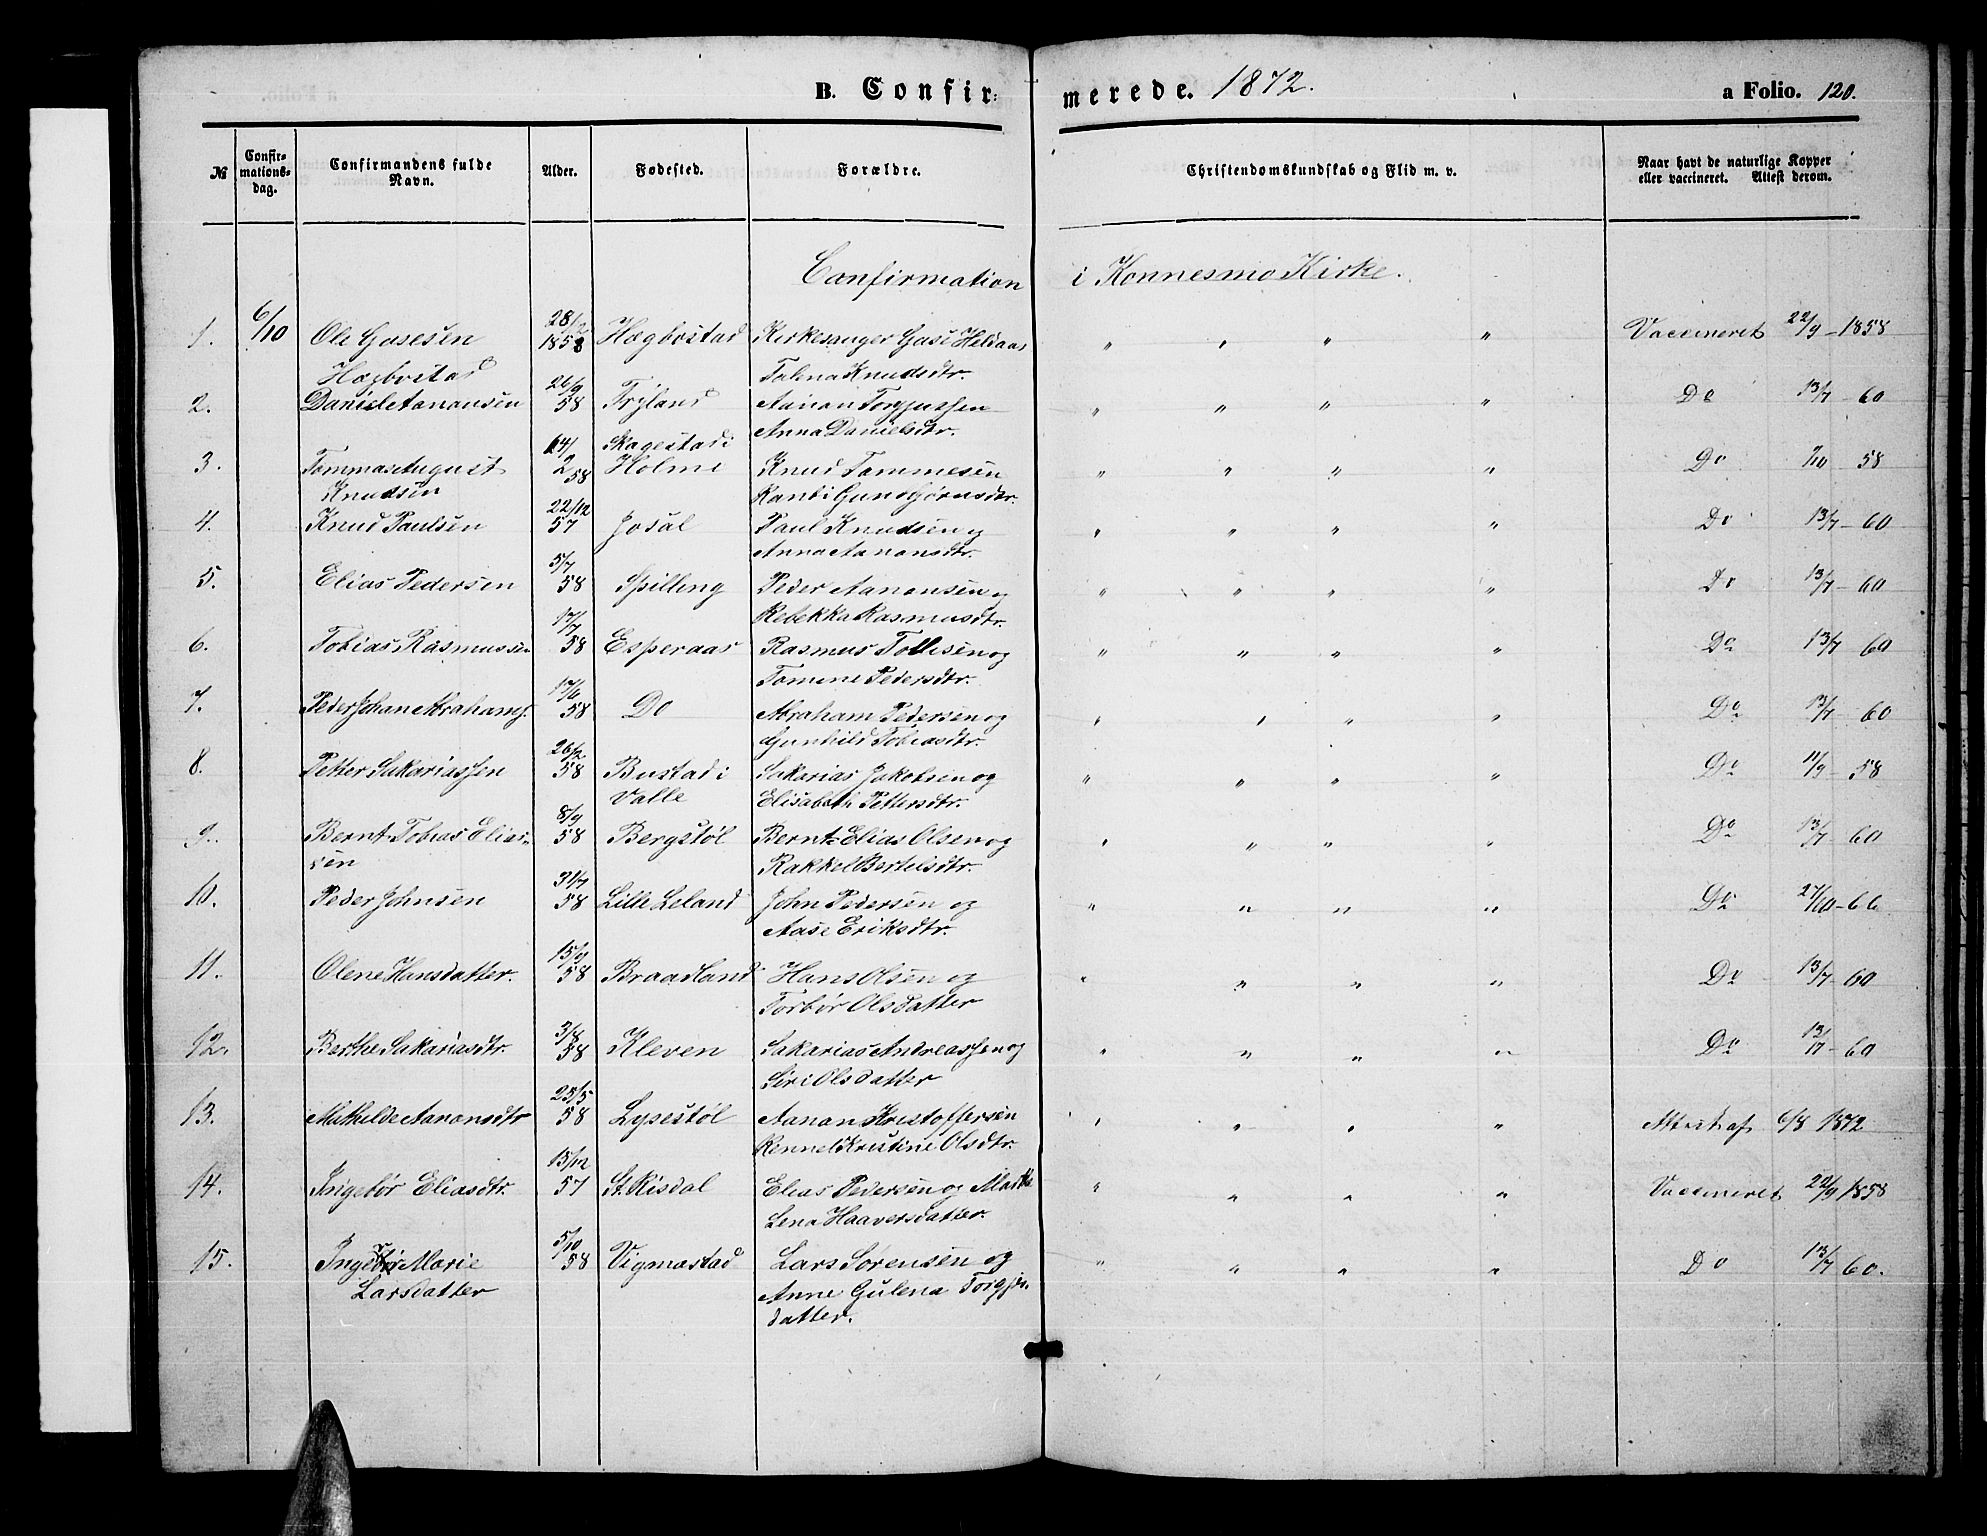 B. Confir= merede. 1872. a Folio. 120.
№ Confir-mations-dag. Confirmandens fulde Navn. Alder. Fødested. Forældre. Christendomskundskab og Flid m. v. Naar havt de naturlige Kopper eller vaccineret. Attest derom.
Confirmation i Konnesmo Kirke.
1. 6/10 Ole Gusesen 28/2 1858 Hægbostad Kirkesanger Guse Heldaas " " " " Vaccineret 22/9 - 1858
Hægbostad Talena Knudsdtr.
2. Daniel Aanonsen 26/9 58 Tryland Aanon Torjussen " " " " Do 13/7 - 60
Anna Danielsdtr.
3. Tommas August 14/2 58 Skagestad i Holme Knud Tommesen " " " " Do 58
Knudsen Gundbjørnsdtr.
4. Knud Paulsen 22/12 57 Josal Paul Knudsen og " " " " Do 13/7 - 60
Anna Aanonsdtr.
5. Elias Pedersen 5/7 58 Spilling Peder Aanonsen og " " " " Do 13/7 - 60
Rebekka Rasmusdtr.
6. Tobias Rasmussen 17/7 58 Esperaas Rasmus Tollisen og " " " " Do 13/7 60
Tomine Pedersdtr.
7. Peder Johan Abrahams. 17/6 58 Do Abraham Pedersen og " " " " Do 13/7 - 60
Gunhild Tobiasdtr.
8. Petter Sakariassen 26/2 58 Bustad i Sakarias Jakobsen og " " " " Do 11/9 - 58
Valle Elisabeth Pettersdtr.
9. Bernt Tobias Elias- 8/9 58 Bergstøl Bernt Elias Olsen og " " " " Do 13/7 - 60
sen Rakkel Bertelsdtr.
10. Peder Johnsen 31/7 58 Lille Leland John Pedersen og " " " " Do 27/10 - 66
Aase Eriksdtr.
11. Olene Hansdatter. 15/9 58 Braadland Hans Olsen og " " " " Do 13/7 - 60
Torbør Olsdatter
12. Berthe Sakariasdtr. 3/8 58 Kleven Sakarias Andreassen og " " " " Do 13/7 - 60
Siri Olsdatter
13. Mathilde Aanonsdtr 25/5 58 Lysestøl Aanon Kristoffersen " " " " Attest af 6/8 1872
Rennel Kristine Olsdtr.
14. Ingebør Eliasdtr. 15/12 57 St. Risdal Elias Pedersen og Marthe " " " " Vaccineret 22/9 1858
Lena Haaversdatter.
15. Ingebør Marie 5/10 58 Vigmostad Lars Sørensen og " " " " Do 13/7 60.
Larsdatter Anne Gulena Torgjus
datter.